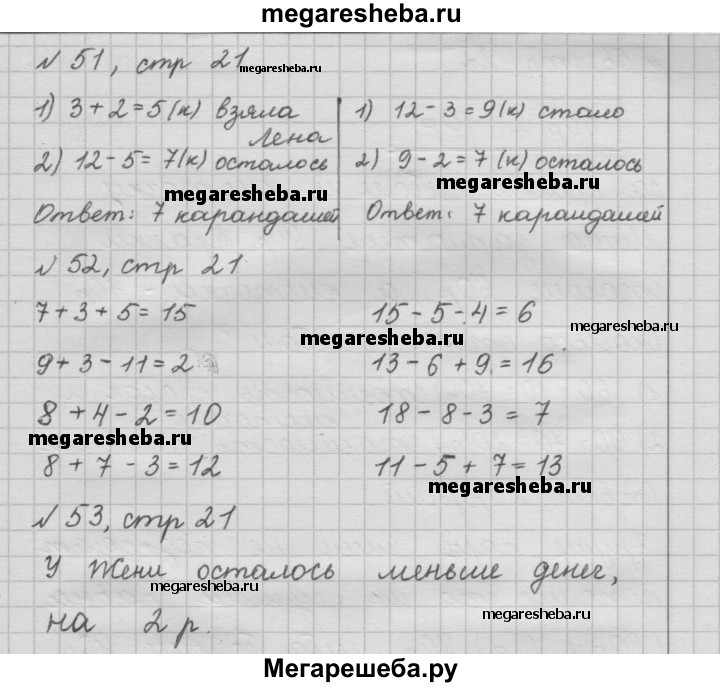 megaresheba.ru
№ 51, стр 21
megaresheba.ru
1) 3 + 2 = 5 (к) взяла
Лена
2) 12 - 5 = 7 (к) осталось
megaresheba.ru
Ответ: 7 карандашей
1) 12 - 3 = 9 (к) стало
2) 9 - 2 = 7 (к) осталось
megaresheba.ru
Ответ: 7 карандашей
№ 52, стр 21
7 + 3 + 5 = 15
9 + 3 - 11 = 2
8 + 4 - 2 = 10
megaresheba.ru
8 + 7 - 3 = 12
15 - 5 - 4 = 6
megaresheba.ru
megaresheba.ru
13 - 6 + 9 = 16
18 - 8 - 3 = 7
11 - 5 + 7 = 13
megaresheba.ru
№ 53, стр 21
У Жени осталось меньше денег,
megaresheba.ru
megaresheba.ru
на 2 р.
Мегарешеба.ру